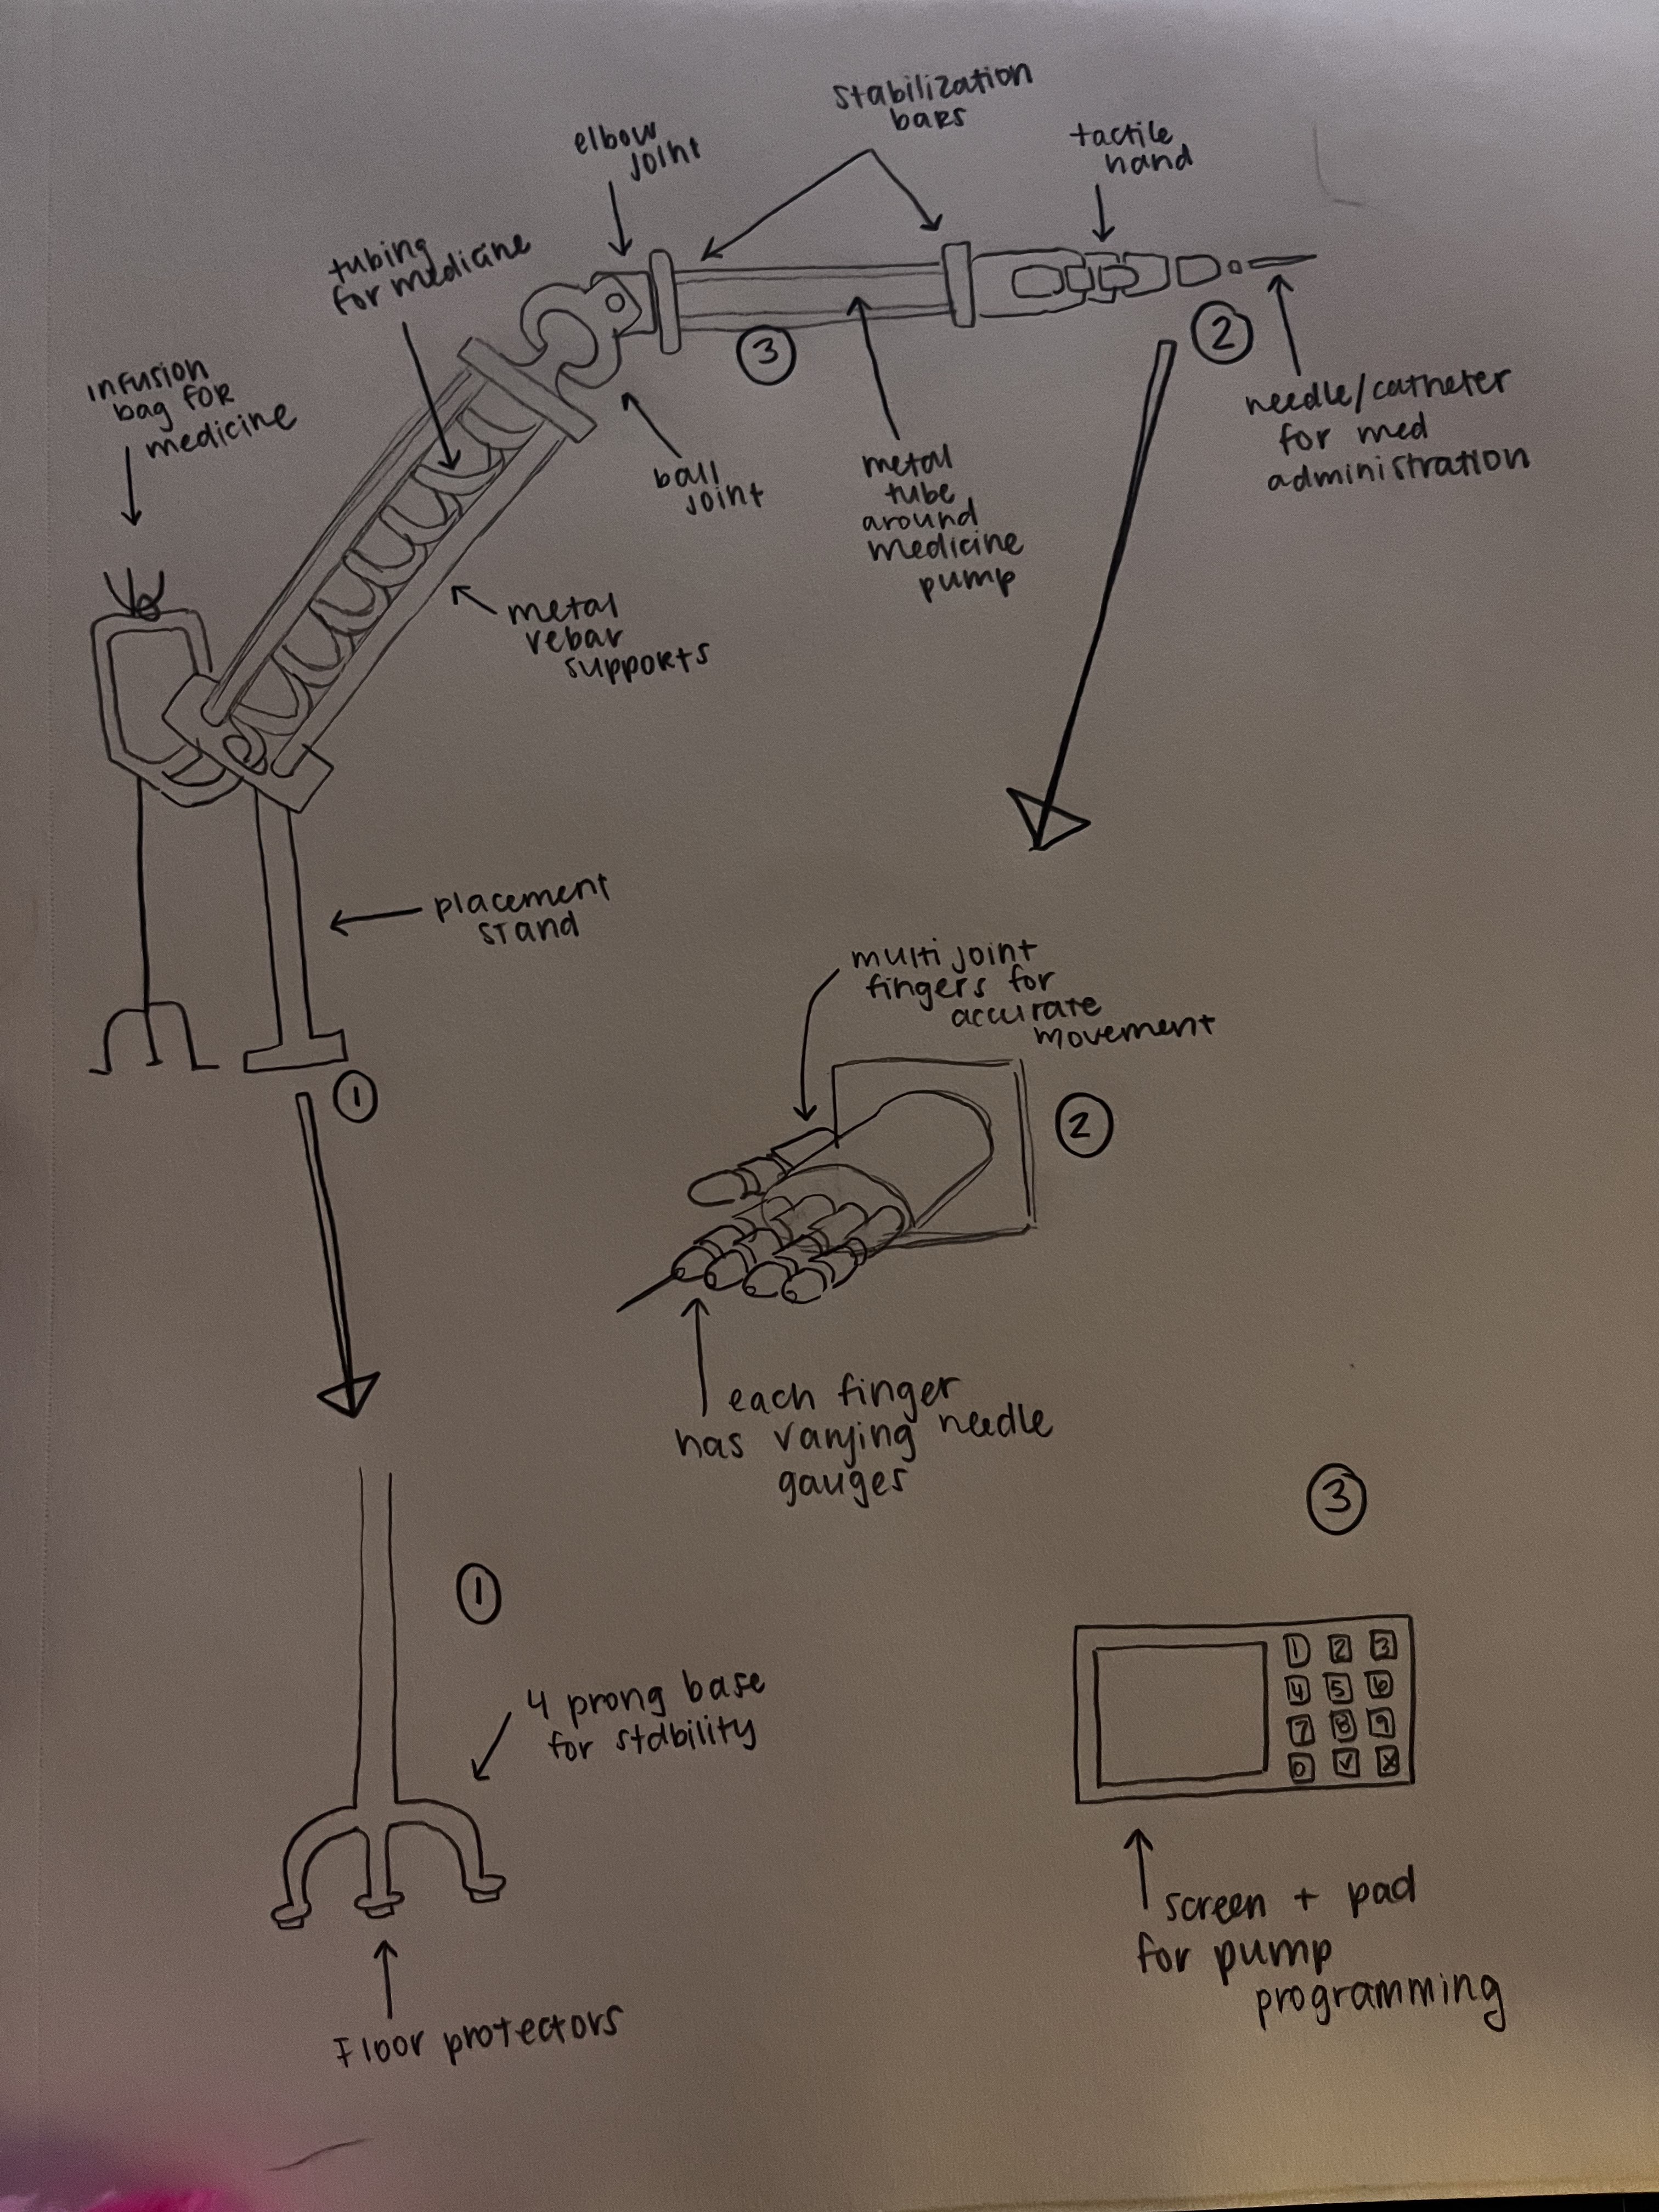 stabilization
bars
elbow
joint
tactile
hand
tubing
for medicine
infusion
bag for
medicine
3
2
needle/catheter
for med
administration
ball
joint
metal
tube
around
medicine
pump
metal
rebar
supports
placement
stand
multi joint
fingers for
accurate
movement
1
2
each finger
has varying needle
gauges
3
1
4 prong base
for stability
1 2 3
4 5 6
7 8 9
0 ✓ X
screen + pad
for pump
programming
Floor protectors